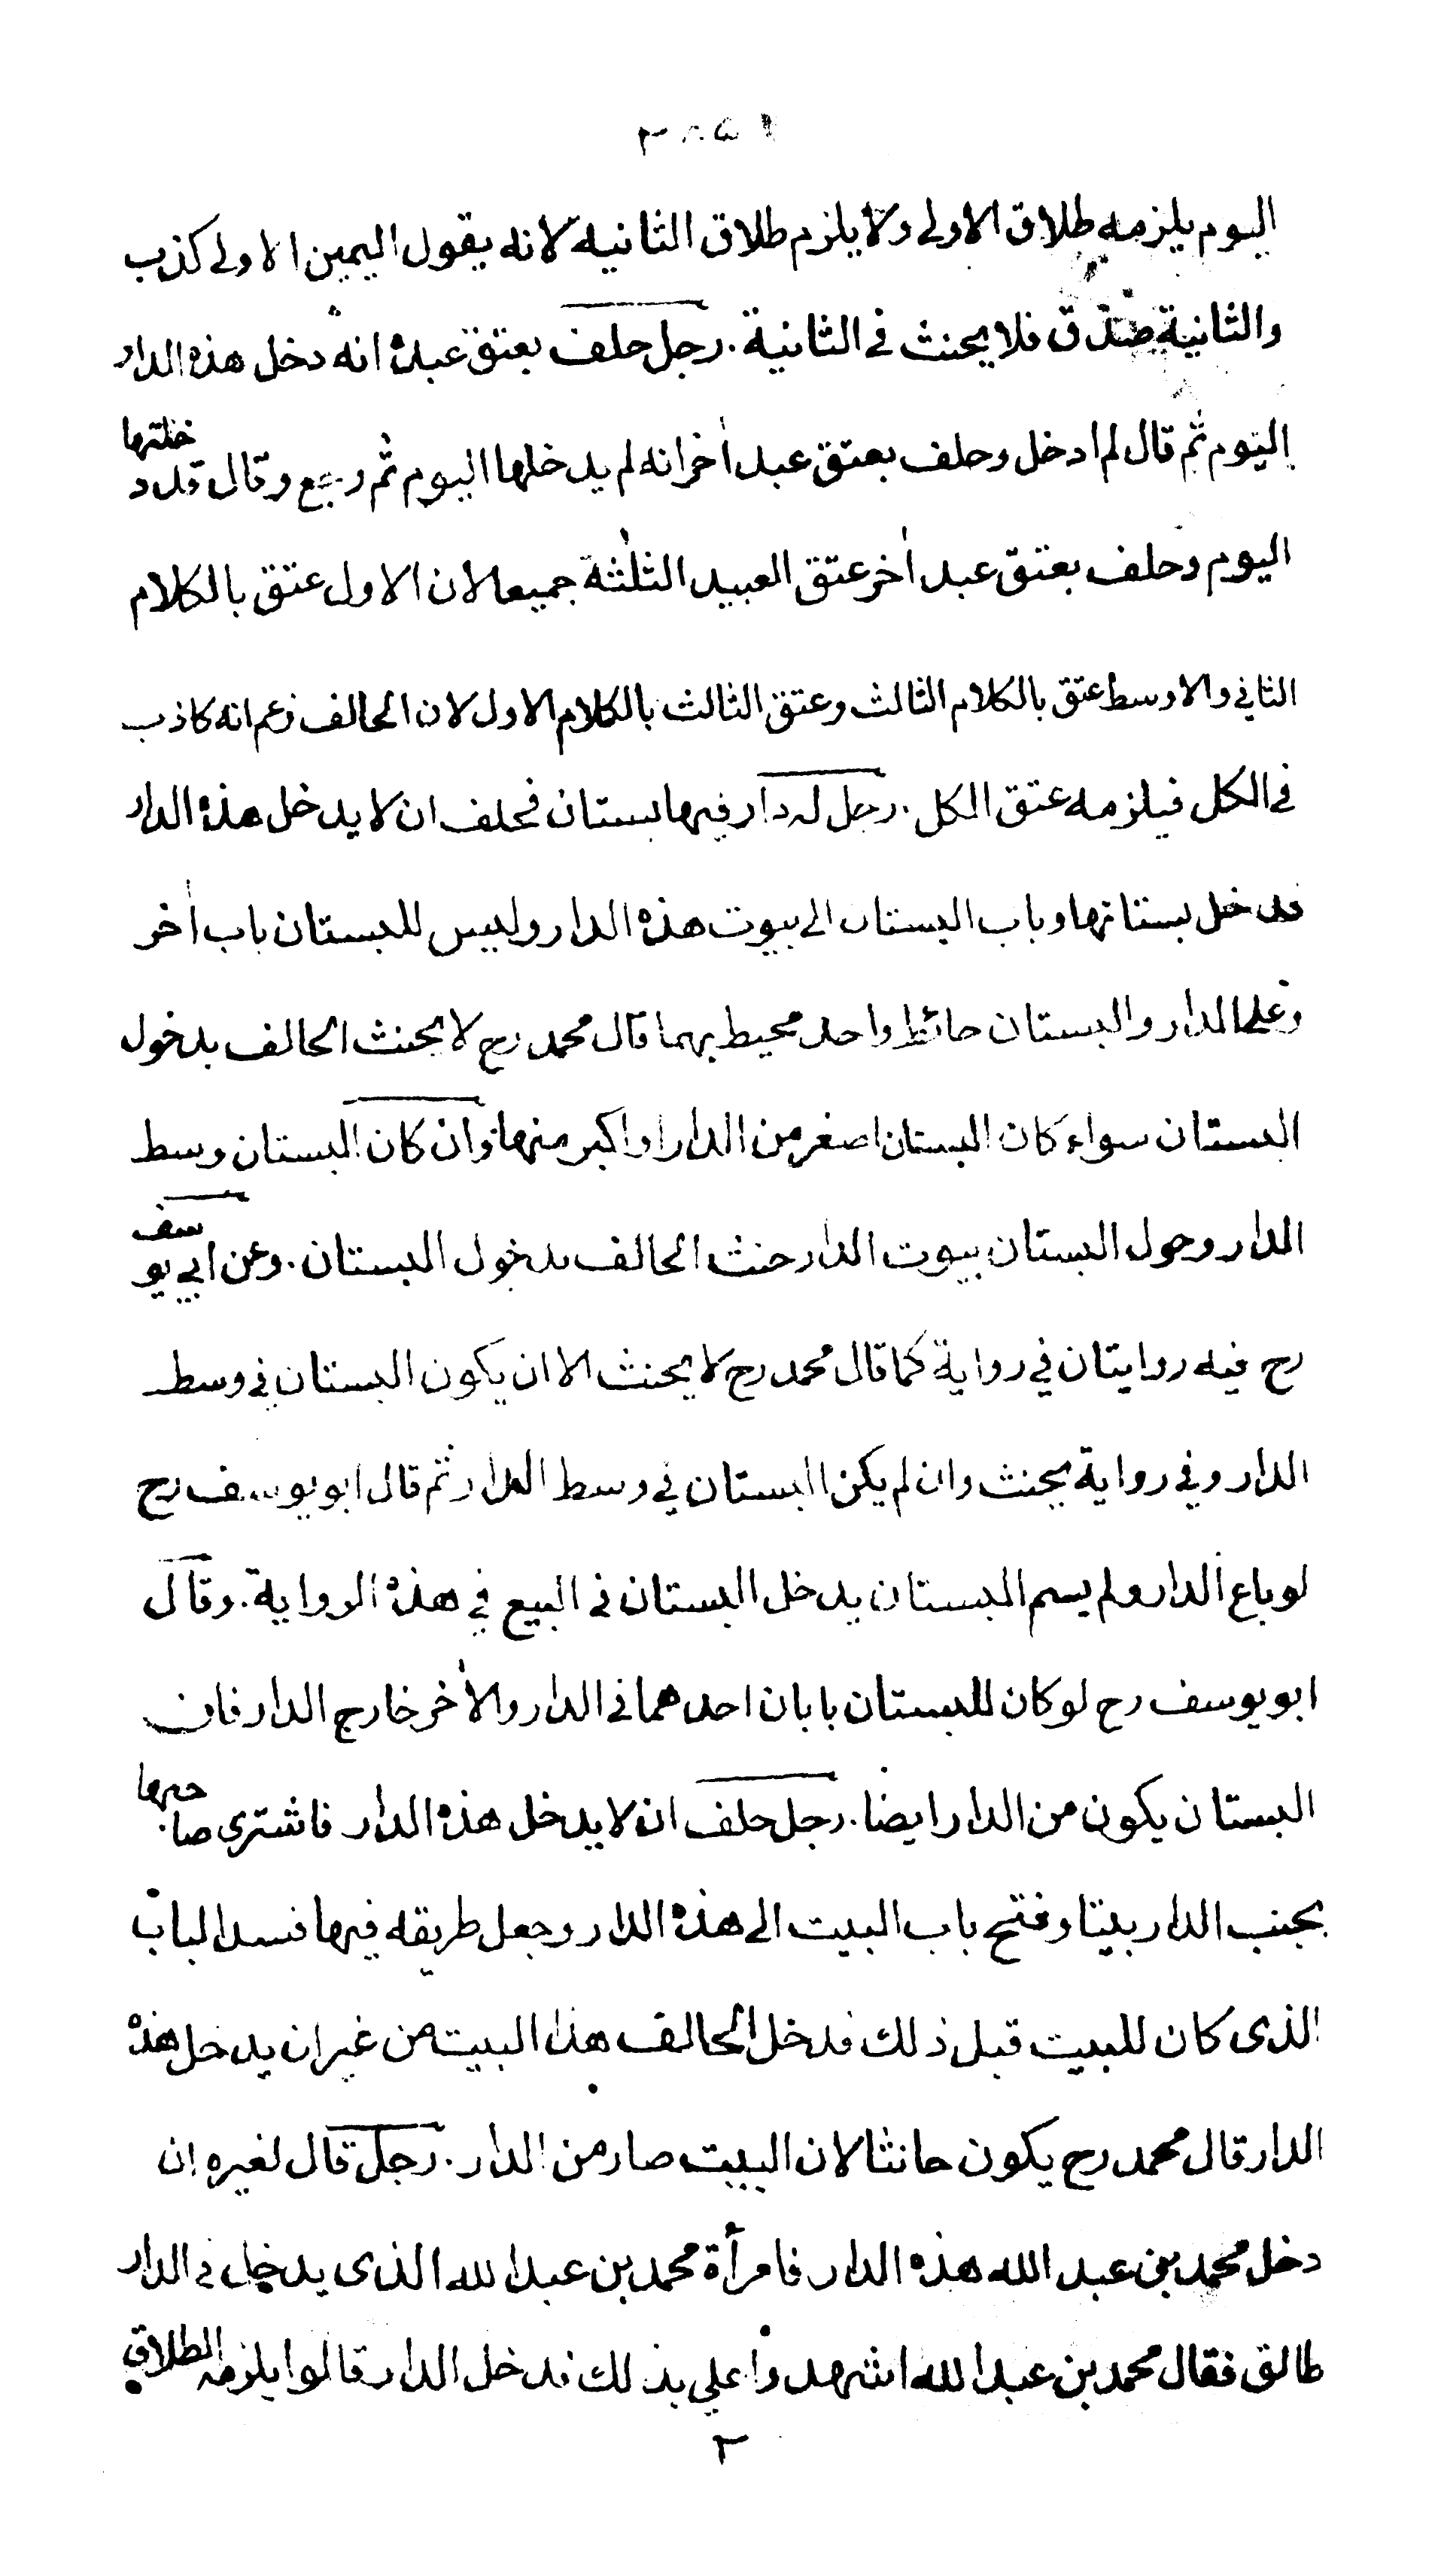 اليوم يلزمه طلاق الاولى ولا يلزم طلاق الثانيه لانه يقول اليمين الاولى كذب
والثانية صدق فلا يحنث في الثانية . رجل حلف بعتق عبده انه دخل هذه الدار
اليوم ثم قال لم ادخل وحلف بعتق عبد أخر انه لم يدخلها اليوم ثم رجع وقال قد دخلتها
اليوم وحلف بعتق عبد أخر عتق العبيد الثلثة جميعا لان الاول عتق بالكلام
الثاني والاوسط عتق بالكلام الثالث وعتق الثالث بالكلام الاول لان الحالف زعم انه كاذب
في الكل فيلزمه عتق الكل . رجل له دار فيها بستان فحلف ان لا يدخل هذه الدار
فدخل بستانها وباب البستان الى بيوت هذه الدار وليس للبستان باب أخر
وعلى الدار والبستان حائط واحد محيط بهما قال محمد رح لا يحنث الحالف بدخول
البستان سواء كان البستان اصغر من الدار او اكبر منها وان كان البستان وسط
الدار وحول البستان بيوت الدار حنث الحالف بدخول البستان . وعن ابي يوسف
رح فيه روايتان في رواية كما قال محمد رح لا يحنث الا ان يكون البستان في وسط
الدار وفي رواية يحنث وان لم يكن البستان في وسط الدار ثم قال ابو يوسف رح
لو باع الدار ولم يسم البستان يدخل البستان في البيع في هذه الرواية . وقال
ابو يوسف رح لو كان للبستان بابان احدهما في الدار والأخر خارج الدار فان
البستان يكون من الدار ايضا . رجل حلف ان لا يدخل هذه الدار فاشترى صاحبها
بجنب الدار بيتا وفتح باب البيت الى هذه الدار وجعل طريقه فيها فسد الباب
الذى كان للبيت قبل ذلك فدخل الحالف هذا البيت من غير ان يدخل هذه
الدار قال محمد رح يكون حانثا لان البيت صار من الدار . رجل قال لغيره ان
دخل محمد بن عبد الله هذه الدار فامرأة محمد بن عبد الله الذى يدخل في الدار
طالق فقال محمد بن عبد الله اشهدوا علي بذلك فدخل الدار قالوا يلزمه الطلاق
٢